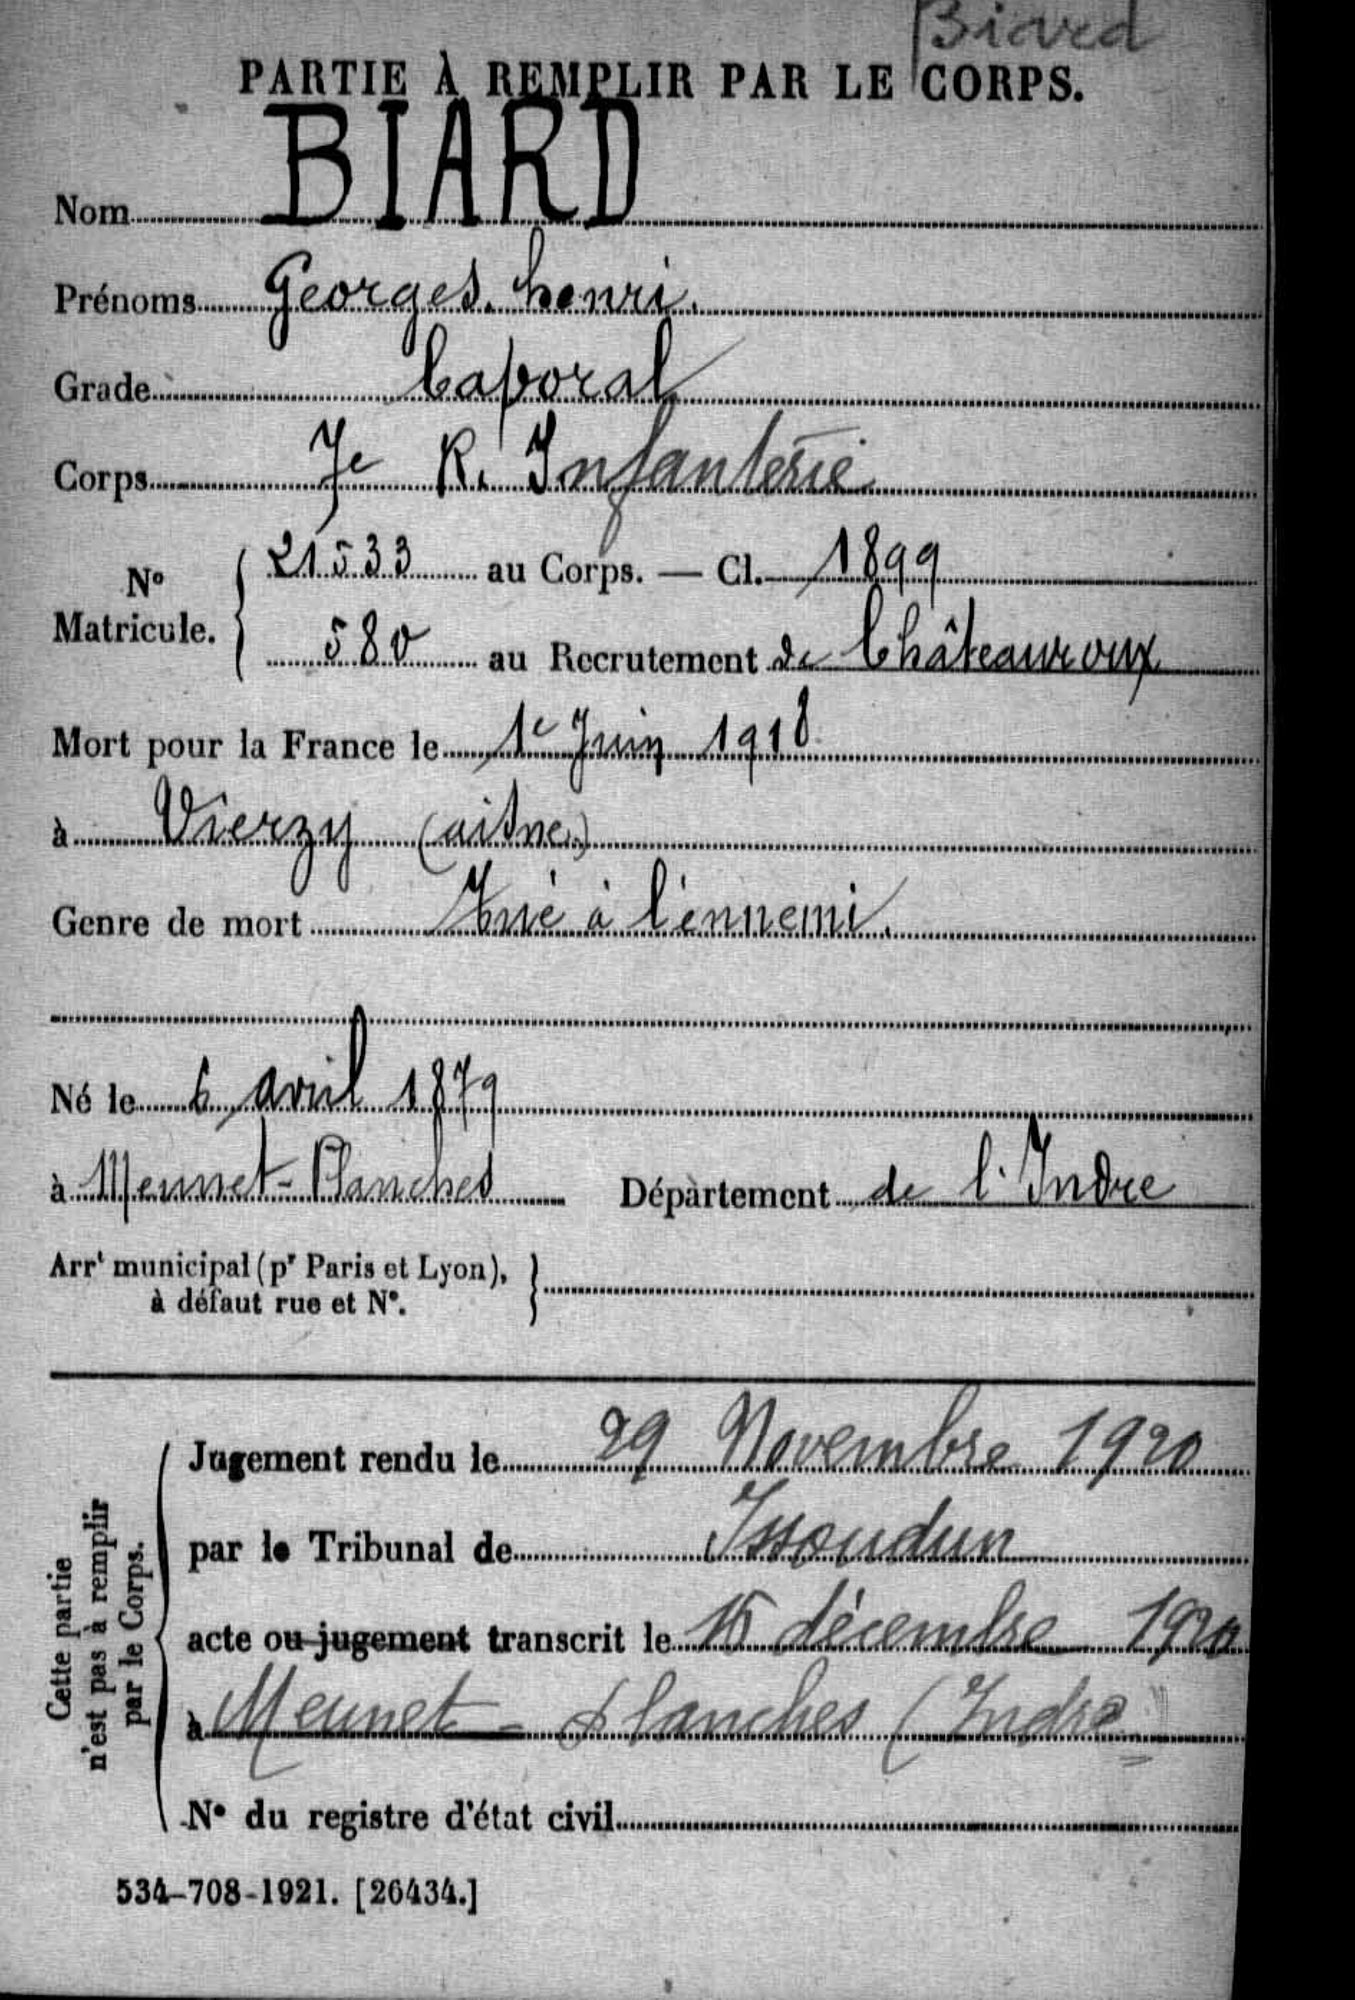 Biard
PARTIE À REMPLIR PAR LE CORPS.
Nom BIARD
Prénoms Georges. henri.
Grade Caporal
Corps 7e R. Infanterie
No Matricule. { 21533 au Corps. — Cl. 1899
580 au Recrutement de Châteauroux
Mort pour la France le 1e Juin 1918
à Vierzy (aisne.)
Genre de mort Tué à l'ennemi.
Né le 6 avril 1879
à Meunet-Planches Département de l'Indre
Arrt municipal (pr Paris et Lyon), }
à défaut rue et No.
Cette partie
n'est pas à remplir
par le Corps.
Jugement rendu le 29 Novembre 1920
par le Tribunal de Issoudun
acte ou jugement transcrit le 15 décembre 1920
à Meunet-Planches (Indre
No du registre d'état civil
534-708-1921. [26434.]